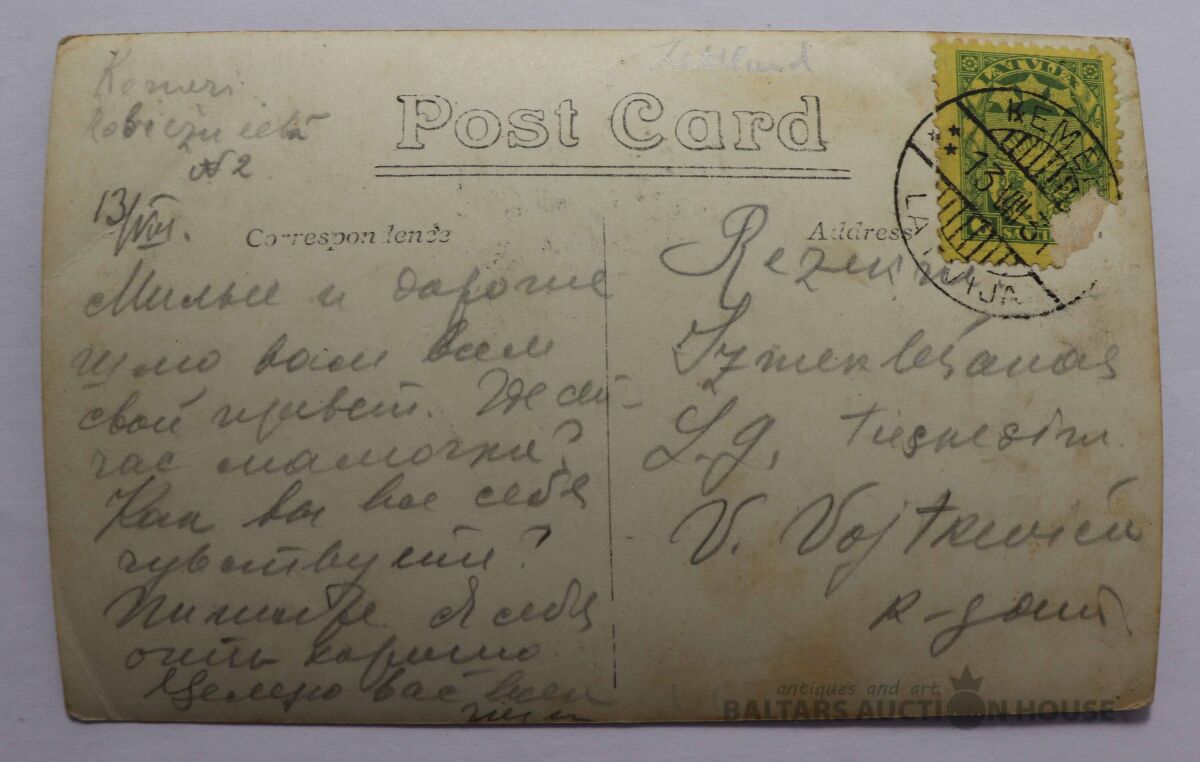 Lettland
Post Card
Kemeri
№ 2
13/VIII.
Correspondence
Address
LATVIJA
KEMERI
13 VIII
LATVIJA
Милые и дорогие
шлю вам всем
свой привет. Где сей-
час мамочка?
Как вы все себя
чувствуете?
Пишите Я себя
очень хорошо
Целую вас всех
Rezekne
Izmeklešanas
tiesnesim
V. Vojtkevič
k-gam
antiques and art
BALTARS AUCTION HOUSE